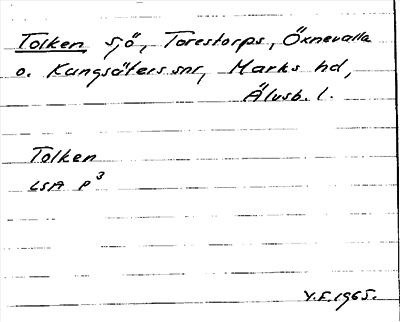 Tolken, sjö, Torestorps, Öxnevalla
o. Kungsäters snr, Marks hd,
Älvsb. l.
Tolken
LSA P³
V.E. 1965.